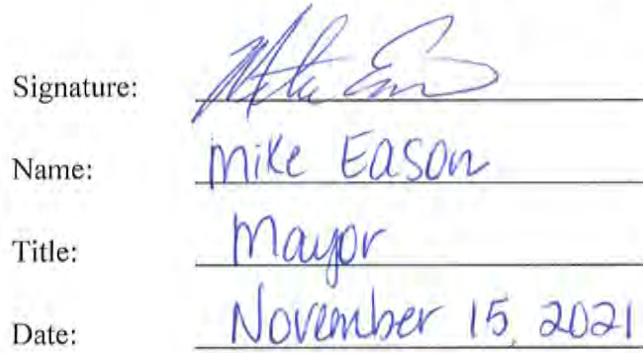 Signature: Mike Eason
Name: Mike Eason
Title: Mayor
Date: November 15, 2021